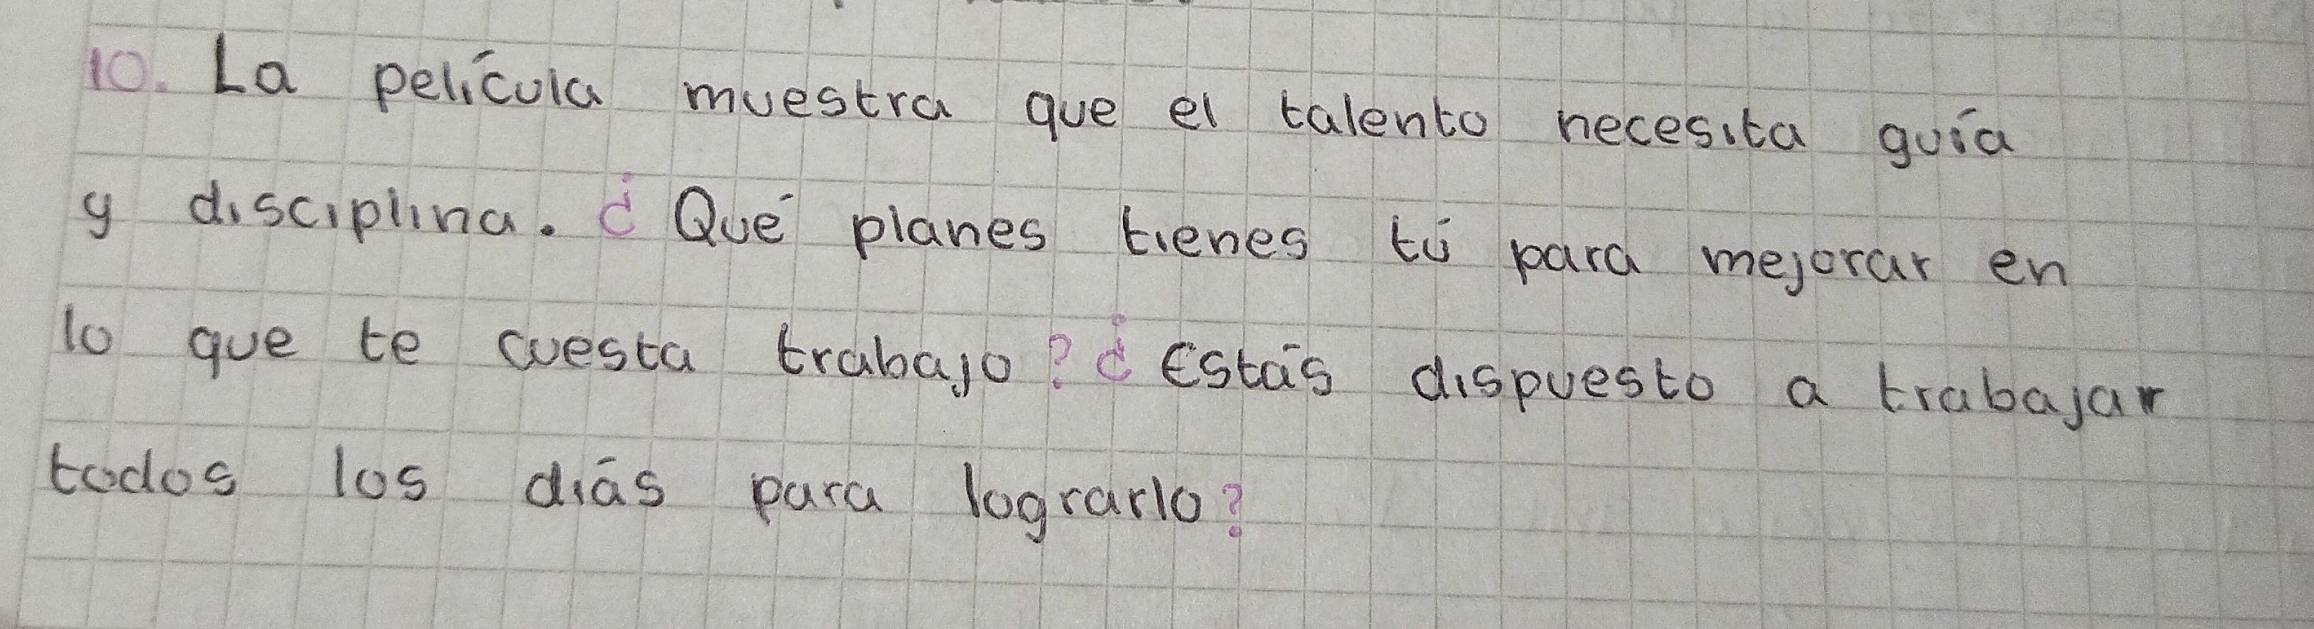 10. La película muestra que el talento necesita guía
y disciplina. ¿Qué planes tienes tú para mejorar en
lo que te cuesta trabajo? ¿Estás dispuesto a trabajar
todos los diás para lograrlo?